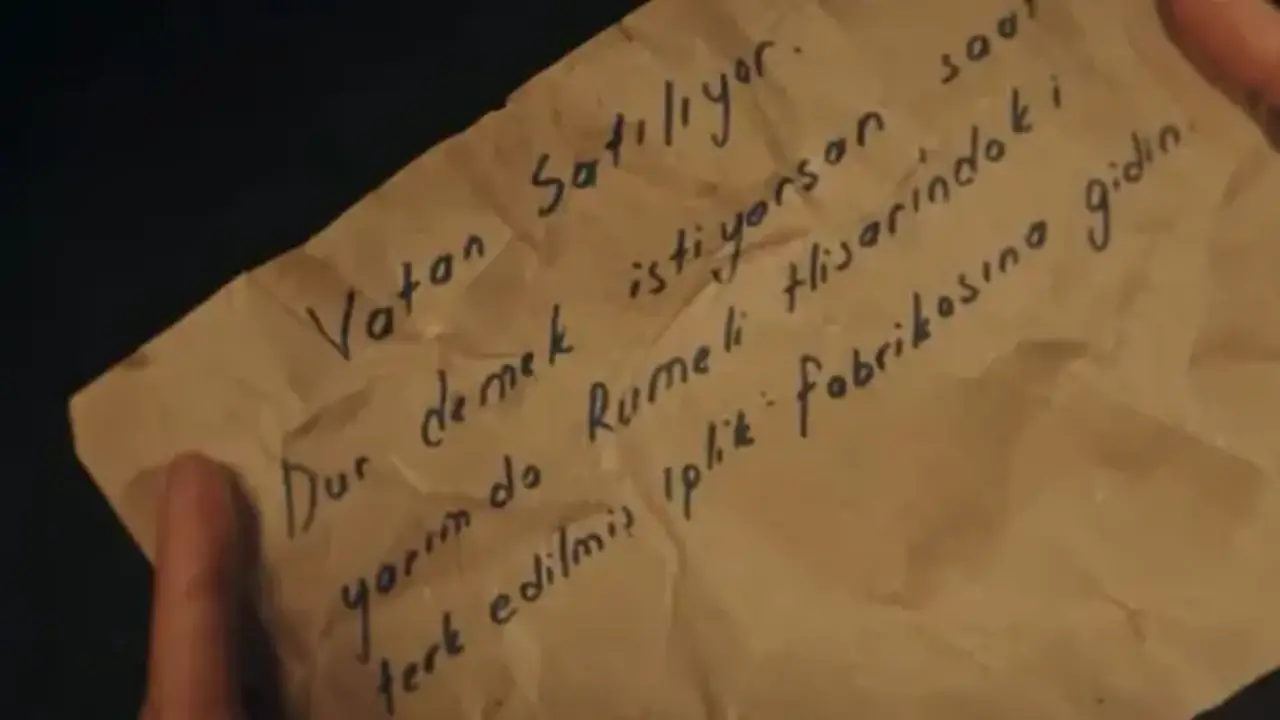 Vatan Satılıyor.
Dur demek istiyorsan saat
yarımda Rumeli Hisarindaki
terk edilmiş iplik fabrikasına gidin.